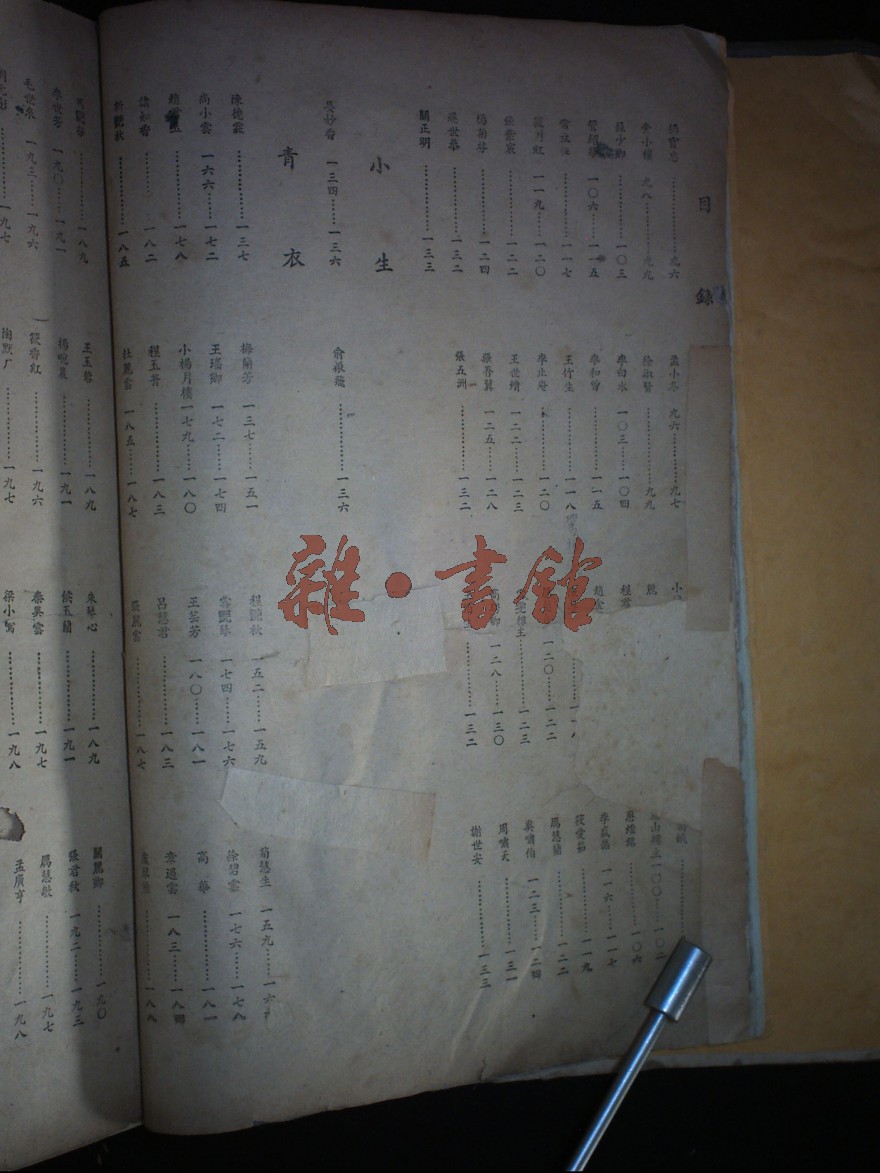 目錄
楊寶忠……九六
孟小冬 九六……九七
安小樓 九八……九九
徐淑賢……九九
蘇少卿……一〇三
李白水 一〇三……一〇四
一〇六……一一五
李和曾……一一五
李盛藻 一一六……一一七
常立恒……一一七
王竹生……一一八
筱愛茹……一一九
筱月紅 一一九……一二〇
李止庵……一二〇
一二〇……一二二
馬慧蘭……一二二
張紫宸……一二二
王世續 一二二……一二三
……一二三
奚嘯伯 一二三……一二四
楊菊芬……一二四
張吾翼 一二五……一二八
一二八……一三〇
周嘯天……一三一
張世恭……一三二
張五洲……一三二
……一三二
謝世安……一三三
關正明……一三三
小生
吳妙香 一三四……一三六
俞振飛……一三六
青衣
陳德霖……一三七
梅蘭芳 一三七……一五一
程豔秋 一五二……一五九
荀慧生 一五九……一六
尚小雲 一六六……一七二
王瑤卿 一七二……一七四
雪豔琴 一七四……一七六
徐碧雲 一七六……一七八
……一七八
小楊月樓 一七九……一八〇
王芸芳 一八〇……一八一
高華……一八一
諸如香……一八二
程玉菁……一八三
呂慧君……一八三
章遏雲 一八三……一八四
新豔秋……一八五
杜麗雲 一八五……一八七
張麗雲……一八七
……一八八
……一八九
王玉蓉……一八九
朱琴心……一八九
關麗卿……一九〇
李世芳 一九〇……一九一
楊畹農……一九一
侯玉蘭……一九一
張君秋 一九二……一九三
毛世來 一九三……一九六
筱香紅……一九六
秦吳雲……一九七
馬慧敏……一九七
……一九七
陶默厂……一九七
梁小鸞……一九八
孟廣亨……一九八
雜·書館